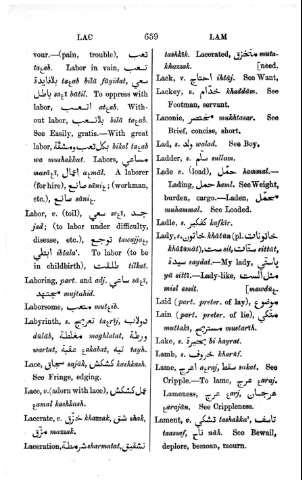 LAC 659 LAM
vour.—(pain, trouble), تعب
taꜫab. Labor in vain, تعب
بلا فايدة taꜫab bilâ fâyidat, سعي
باطل saꜫî bâtil. To oppress with
labor, اتعب atꜫab. With-
out labor, بلا تعب bilâ taꜫab.
See Easily, gratis.—With great
labor, بكل تعب ومشقة bikol taꜫab
wa mushakkat. Labors, مساعي
masâꜫî, اعمال aꜫmâl. A laborer
(for hire), صانع sâniꜫ; (workman,
etc.), صانع sâniꜫ.
Labor, v. (toil), سعي saꜫî, جد
jad; (to labor under difficulty,
disease, etc.), توجع tawajjaꜫ,
ابتلي ibtala'. To labor (to be
in childbirth), طلقت tilkat.
Laboring, part. and adj. ساعي sâꜫî,
مجتهد mujtahid.
Laborsome, متعب mutꜫib.
Labyrinth, s. تعريج taꜫrîj,
dûlâb, مغلطة maghlatat, ورطة
wartat, عقبة ꜫakabat, تيه tayh.
Lace, سجاق sajâk, كشكش kashkash.
See Fringe, edging.
Lace, v. (adorn with lace), عمل كشكش
ꜫamal kashkash.
Lacerate, v. خزق khazzak, شق shak,
مزق mazzak.
Laceration, شرمطة sharmatat, تشقيق
tashkîk. Lacerated, متخزق muta-
khazzak. [need.
Lack, v. احتاج ihtâj. See Want,
Lackey, s. خدام khaddâm. See
Footman, servant.
Laconic, مختصر mukhtasar. See
Brief, concise, short.
Lad, s. ولد walad. See Boy.
Ladder, s. سلم sullam.
Lade v. (load), حمل hammal.—
Lading, حمل haml. See Weight,
burden, cargo.—Laden, محمل
muhammal. See Loaded.
Ladle, s. كفكير kafkîr.
Lady, s. خاتون khâtûn (pl. خاتونات
khâtûnât), ست sit, ستات sittât,
سيدة saydat.—My lady, يا ستي
yâ sittî.—Lady-like, مثل الست
misl essit. [mavdûꜫ.
Laid (part. preter. of lay), موضوع
Lain (part. preter. of lie), متكي
mattakî, مستريح mustarîh.
Lake, s. بحيرة bi hayrat.
Lamb, s. خروف kharûf.
Lame, اعرج aꜫraj, سقط sukat. See
Cripple.—To lame, عرج ꜫaraj.
Lameness, عرج ꜫarj, عرجان
ꜫarajân. See Crippleness.
Lament, v. تشكي tashakka', تاسف
taassef, ناح nâh. See Bewail,
deplore, bemoan, mourn.